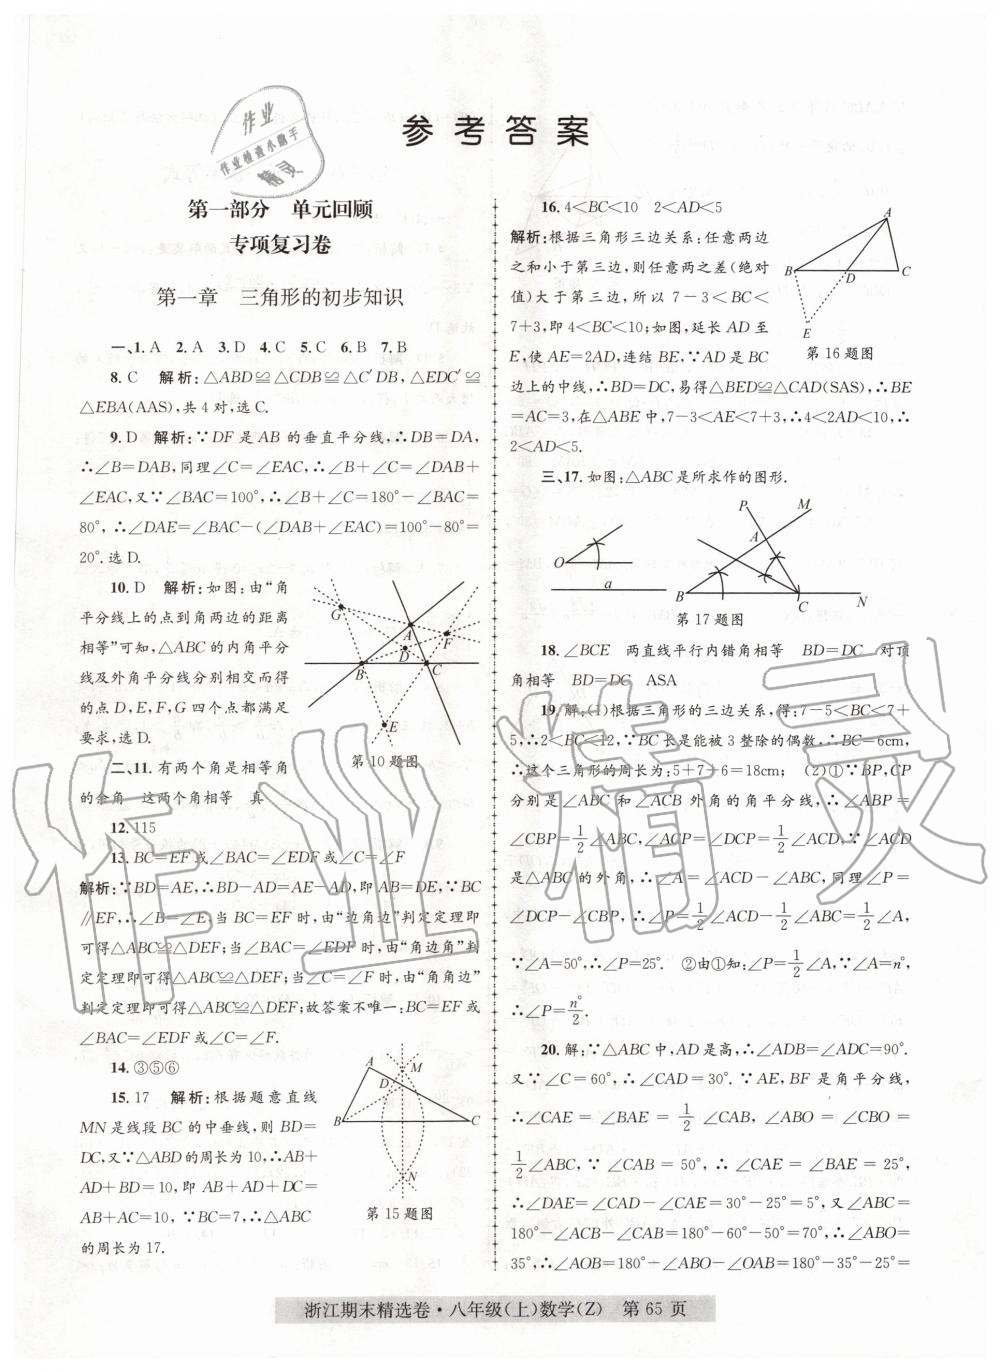 作业
作业检查小助手
精灵
参考答案
第一部分 单元回顾
专项复习卷
第一章 三角形的初步知识
一、1. A 2. A 3. D 4. C 5. C 6. B 7. B
8. C 解析:△ABD≌△CDB≌△C′DB,△EDC′≌
△EBA(AAS),共4对,选C.
9. D 解析:∵DF是AB的垂直平分线,∴DB=DA,
∴∠B=DAB,同理∠C=∠EAC,∴∠B+∠C=∠DAB+
∠EAC,又∵∠BAC=100°,∴∠B+∠C=180°-∠BAC=
80°,∴∠DAE=∠BAC-(∠DAB+∠EAC)=100°-80°=
20°.选D.
10. D 解析:如图:由“角
平分线上的点到角两边的距离
相等”可知,△ABC的内角平分
线及外角平分线分别相交而得
的点D,E,F,G四个点都满足
要求,选D.
G A F D B C E
第10题图
二、11. 有两个角是相等角
的余角 这两个角相等 真
12. 115
13. BC=EF或∠BAC=∠EDF或∠C=∠F
解析:∵BD=AE,∴BD-AD=AE-AD,即AB=DE,∵BC
∥EF,∴∠B=∠E,当BC=EF时,由“边角边”判定定理即
可得△ABC≌△DEF;当∠BAC=∠EDF时,由“角边角”判
定定理即可得△ABC≌△DEF;当∠C=∠F时,由“角角边”
判定定理即可得△ABC≌△DEF;故答案不唯一:BC=EF或
∠BAC=∠EDF或∠C=∠F.
14. ③⑤⑥
15. 17 解析:根据题意直线
MN是线段BC的中垂线,则BD=
DC,又∵△ABD的周长为10,∴AB+
AD+BD=10,即AB+AD+DC=
AB+AC=10,∵BC=7,∴△ABC
的周长为17.
A M D B C N
第15题图
16. 4<BC<10 2<AD<5
解析:根据三角形三边关系:任意两边
之和小于第三边,则任意两之差(绝对
值)大于第三边,所以7-3<BC<
7+3,即4<BC<10;如图,延长AD至
E,使AE=2AD,连结BE,∵AD是BC
边上的中线,∴BD=DC,易得△BED≌△CAD(SAS),∴BE
=AC=3,在△ABE中,7-3<AE<7+3,∴4<2AD<10,∴
2<AD<5.
A B D C E
第16题图
三、17. 如图:△ABC是所求作的图形.
O a P M A B C N
第17题图
18. ∠BCE 两直线平行内错角相等 BD=DC 对顶
角相等 BD=DC ASA
19. 解:(1)根据三角形的三边关系,得:7-5<BC<7+
5,∴2<BC<12,∵BC长是能被3整除的偶数,∴BC=6cm,
∴这个三角形的周长为:5+7+6=18cm; (2)①∵BP,CP
分别是∠ABC和∠ACB外角的角平分线,∴∠ABP=
∠CBP=1/2∠ABC,∠ACP=∠DCP=1/2∠ACD,∵∠ACD
是△ABC的外角,∴∠A=∠ACD-∠ABC,同理∠P=
∠DCP-∠CBP,∴∠P=1/2∠ACD-1/2∠ABC=1/2∠A,
∵∠A=50°,∴∠P=25°. ②由①知:∠P=1/2∠A,∵∠A=n°,
∴∠P=n°/2.
20. 解:∵△ABC中,AD是高,∴∠ADB=∠ADC=90°.
又∵∠C=60°,∴∠CAD=30°.∵AE,BF是角平分线,
∴∠CAE=∠BAE=1/2∠CAB,∠ABO=∠CBO=
1/2∠ABC,∵∠CAB=50°,∴∠CAE=∠BAE=25°,
∴∠DAE=∠CAD-∠CAE=30°-25°=5°,又∠ABC=
180°-∠ACB-∠CAB=180°-60°-50°=70°,∴∠ABO=
35°,∴∠AOB=180°-∠BAO-∠ABO=180°-35°-25°=
作业精灵
浙江期末精选卷·八年级(上)数学(Z) 第65页